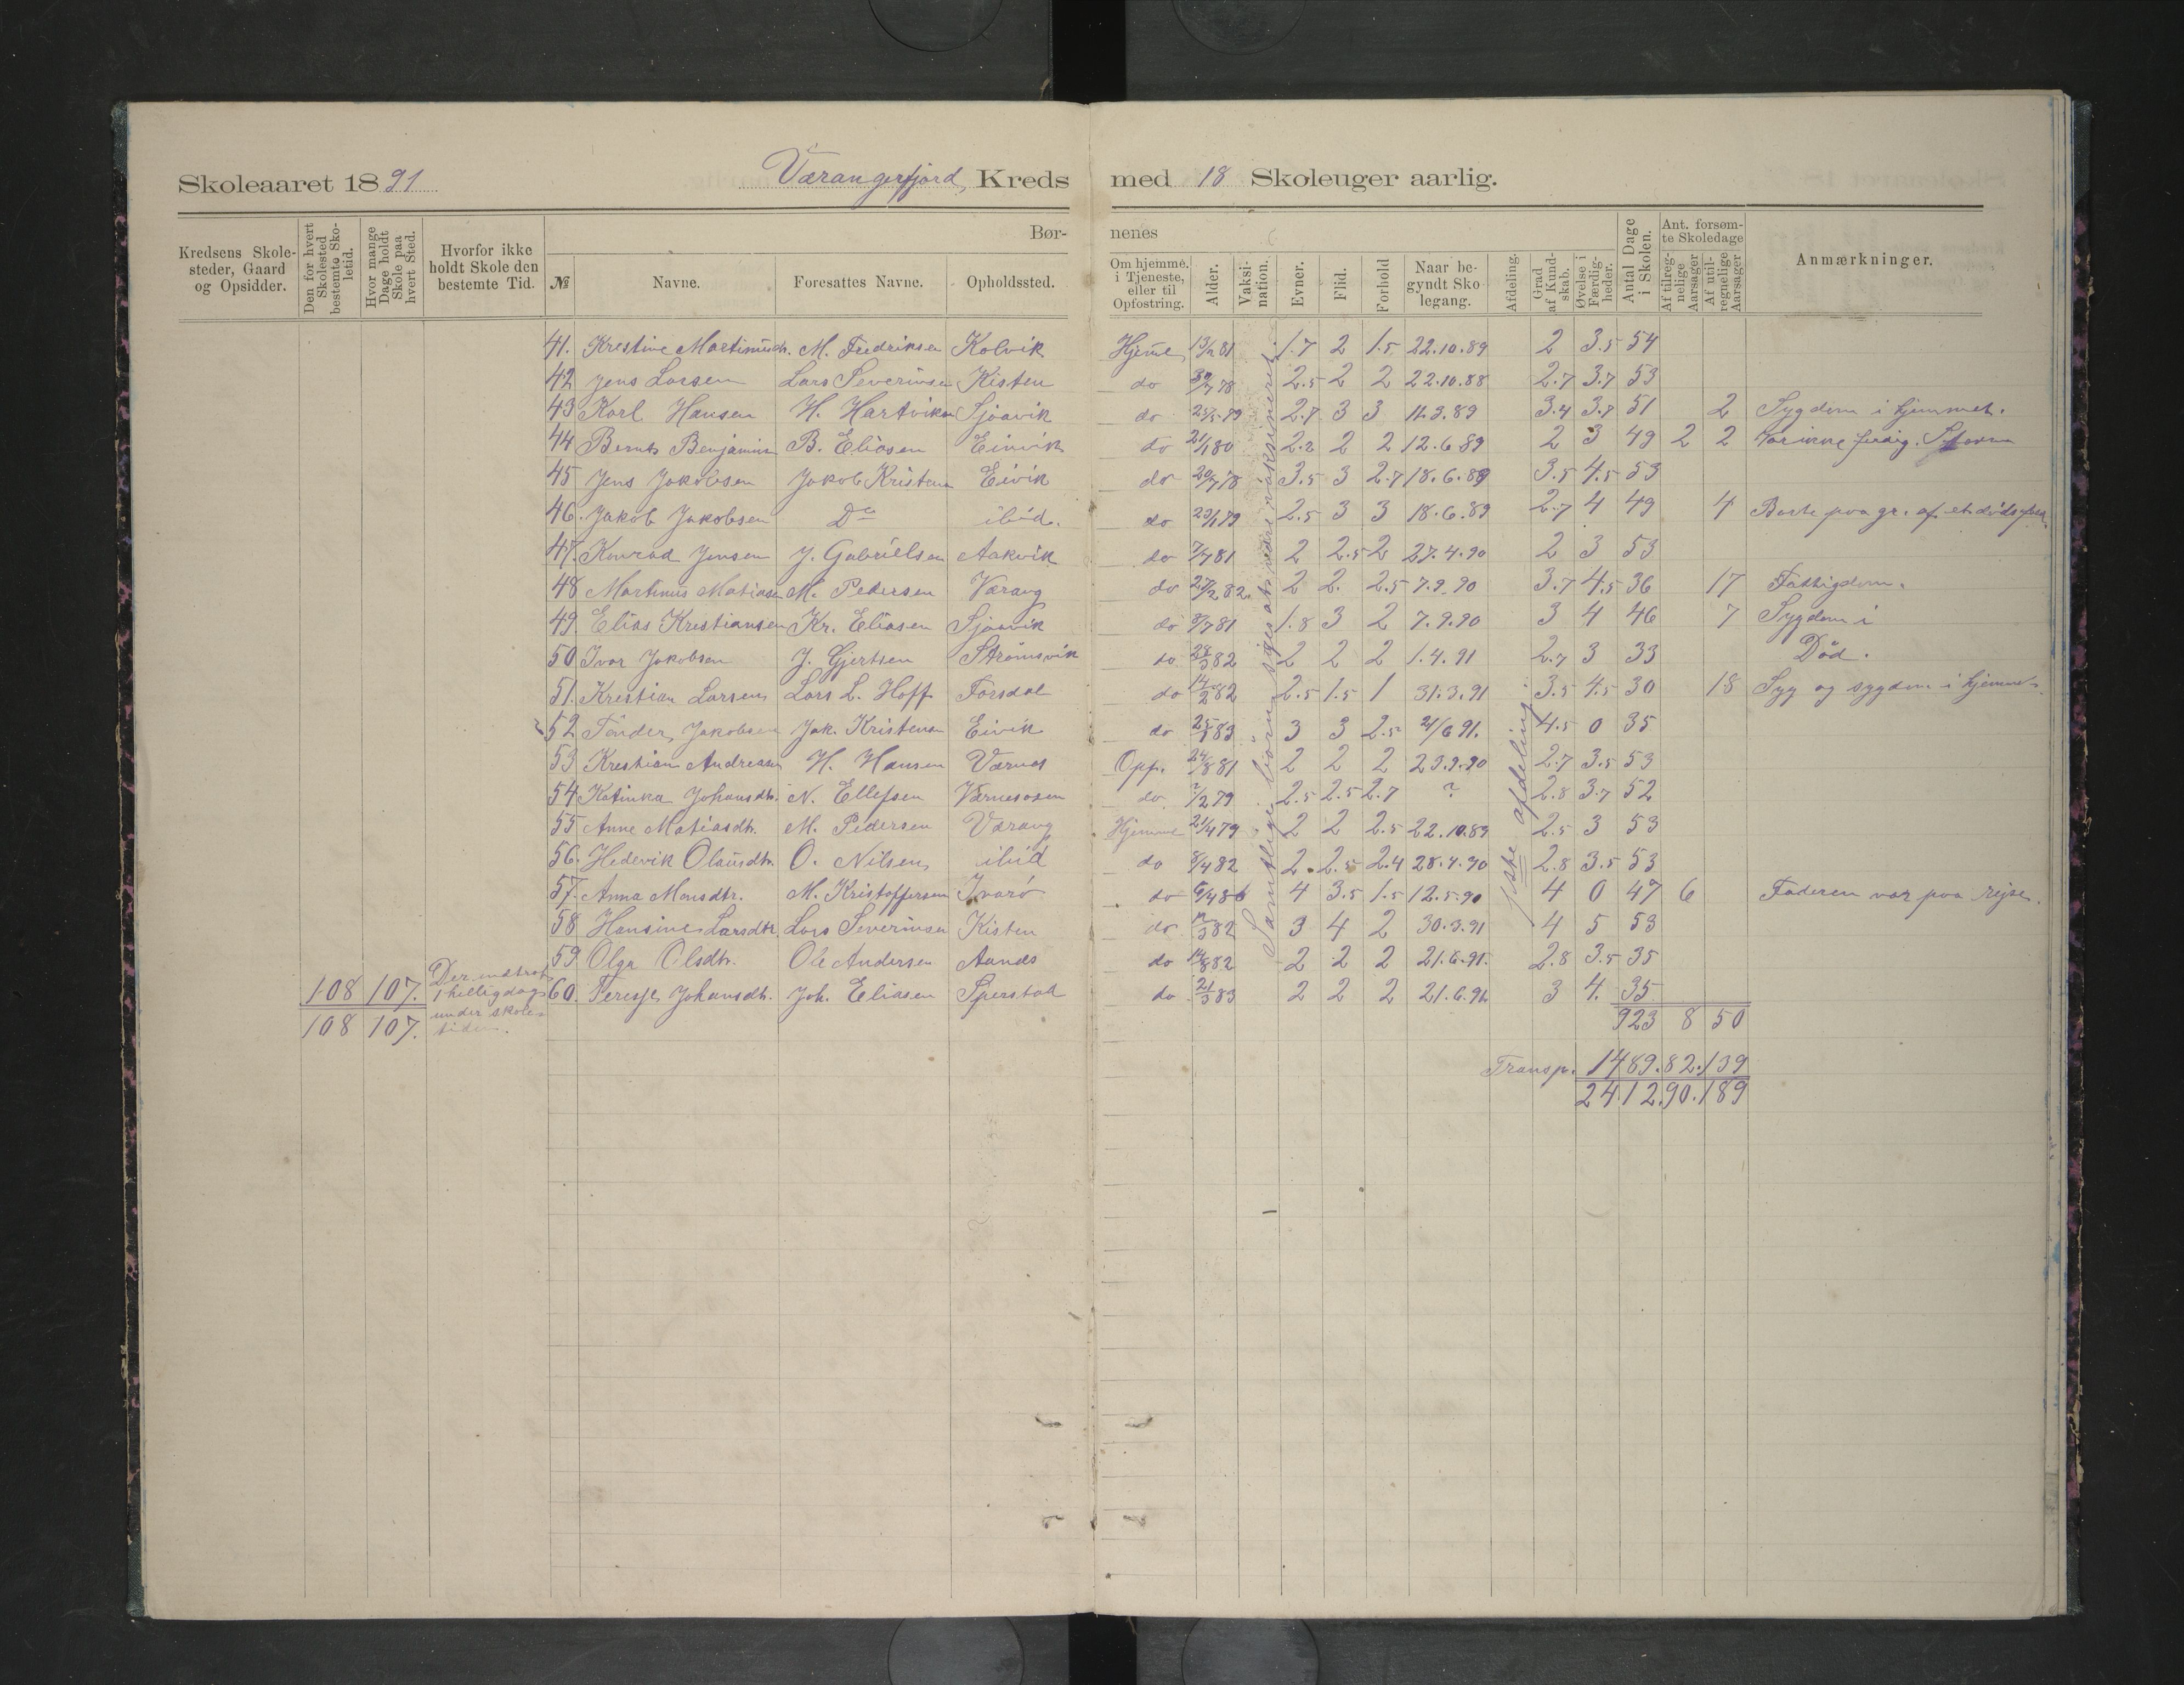 Skoleaaret 1891 Værangerfjord Kreds med 18 Skoleuger aarlig.
Kredsens Skolesteder, Gaard og Opsidder.
Den for hvert Skolested bestemte Skoletid.
Hvor mange Dage holdt Skole paa hvert Sted.
Hvorfor ikke holdt Skole den bestemte Tid.
Børnenes
№ Navne. Foresattes Navne. Opholdssted.
Om hjemme, i Tjeneste, eller til Opfostring.
Alder. Vaksination. Evner. Flid. Forhold
Naar begyndt Skolegang.
Afdeling. Grad af Kundskab. Øvelse i Færdigheder.
Antal Dage i Skolen.
Ant. forsømte Skoledage
Af tilregnelige Aarsager Af utilregnelige Aarsager
Anmærkninger.
41. Krestine Martinusdt. M. Fredriksen Kolvik Hjeme 13/2 81 1.7 2 1.5 22.10.89 2 3.5 54
42 Jens Larsen Lars Severinsen Kisten do 30/7 78 2.5 2 2 22.10.88 2.7 3.7 53
43 Karl Hansen H. Hartviksen Sjøavik do 25/5 79 2.7 3 3 11.9.89 3.4 3.7 51 2 Sygdom i hjemmet.
44 Bernt Benjamin B. Eliasen Eivik do 21/1 80 2.2 2 2 12.6.89 2 3 49 2 2 Var ikke færdig.
45 Jens Jakobsen Jakob Kristens Eivik do 20/7 78 3.5 3 2.7 18.6.89 3.5 4.5 53
46. Jakob Jakobsen Do ibid. do 23/1 79 2.5 3 3 18.6.89 2.7 4 49 4 Borte paa gr. af et dødsfald.
47. Konrad Jensen J. Gabrielsen Aakvik do 7/4 81 2 2.5 2 27.4.90 2 3 53
48 Martinus Matiasen M. Pedersen Varang do 27/2 82. 2 2. 2.5 7.9.90 3.7 4.5 36 17 Fattigdom.
49. Elias Krestiansen Kr. Eliasen Sjøavik do 9/7 81 1.8 3 2 7.9.90 3 4 46 7 Sygdom i
50 Ivar Jakobsen J. Gjertsen Strømsvik do 28/3 82 2 2 2 1.4.91 2.7 3 33 Død.
51. Krestian Larsen Lars L. Hoff Forsdal do 14/2 82 2.5 1.5 1 31.3.91 3.5 4.5 30 18 Syg og sygdom i hjemmet.
52 Tønder Jakobsen Jak. Kristensen Eivik do 25/1 83 3 3 2.5 21/6 91. 4.5 0 35
53 Krestian Andreasen H. Hansen Værnes Opf. 24/8 81 2 2 2 29.9.90 2.7 3.5 53
54 Katinka Johansdt. N. Ellefsen Værnesosen do ?/2 79 2.5 2.5 2.7 ? 2.8 3.7 52
55 Anne Matiasdt. M. Pedersen Varang Hjemme 21/4 79 2 2 2.5 22.10.89 2.5 3 53
56. Hedevik Olausdt. O. Nilsen ibid do 8/4 82 2. 2.5 2.4 28.4.90 2.8 3.5 53
57. Anna Monsdtr. M. Kristoffersen Ivarø do 6/4 86 4 3.5 1.5 12.5.90 4 0 47 6 Faderen var paa rejse.
58 Hansine Larsdtr. Lars Severinsen Kisten do 12/3 82 3 4 2 30.3.91 4 5 53
59 Olga Olsdtr. Ole Andersen Aunes do 14/8 82 2 2 2 21.6.91. 2.8 3.5 35
108 107. Der indtraf 1 helligdag under skoletiden. 60. Teresje Johansdt. Joh. Eliasen Sperstad do 21/3 83 2 2 2 21.6.91 3 4. 35
108 107.
923 8 50
Transp. 1489.82.139
2412.90.189
Samtlige børn siges at være vaksineret.
1ste afdeling.